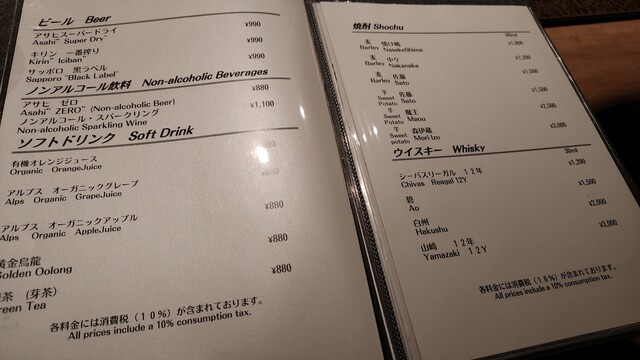 ビール Beer
アサヒスーパードライ ¥990
Asahi" Super Dry"
キリン 一番搾り ¥990
Kirin" Iciban"
サッポロ 黒ラベル ¥990
Sapporo "Black Label"
ノンアルコール飲料 Non-alcoholic Beverages
アサヒ ゼロ ¥880
Asahi" ZERO" (Non-alcoholic Beer)
ノンアルコール・スパークリング ¥1,100
Non-alcoholic Sparkling Wine
ソフトドリンク Soft Drink
有機オレンジジュース ¥880
Organic OrangeJuice
アルプス オーガニックグレープ ¥880
Alps Organic GrapeJuice
アルプス オーガニックアップル ¥880
Alps Organic AppleJuice
黄金烏龍 ¥880
Golden Oolong
茶 (芽茶) ¥880
reen Tea
各料金には消費税(10%)が含まれております。
All prices include a 10% consumption tax.
焼酎 Shochu
麦
Barley NasakeShima ¥1,000
麦 中々
Barley Nakanaka ¥1,200
麦 佐藤
Barley Sato ¥1,500
芋 佐藤
Sweet Potato Sato ¥1,500
芋 魔王
Sweet Potato Maou ¥2,500
芋 森伊蔵
Sweet potato Mori Izo ¥3,000
ウイスキー Whisky 30ml
シーバスリーガル 12年 ¥1,200
Chivas Reagal 12Y
碧 ¥1,500
Ao
白州 ¥2,000
Hakushu
山崎 12年 ¥3,000
Yamazaki 12Y
各料金には消費税(10%)が含まれております。
All prices include a 10% consumption tax.